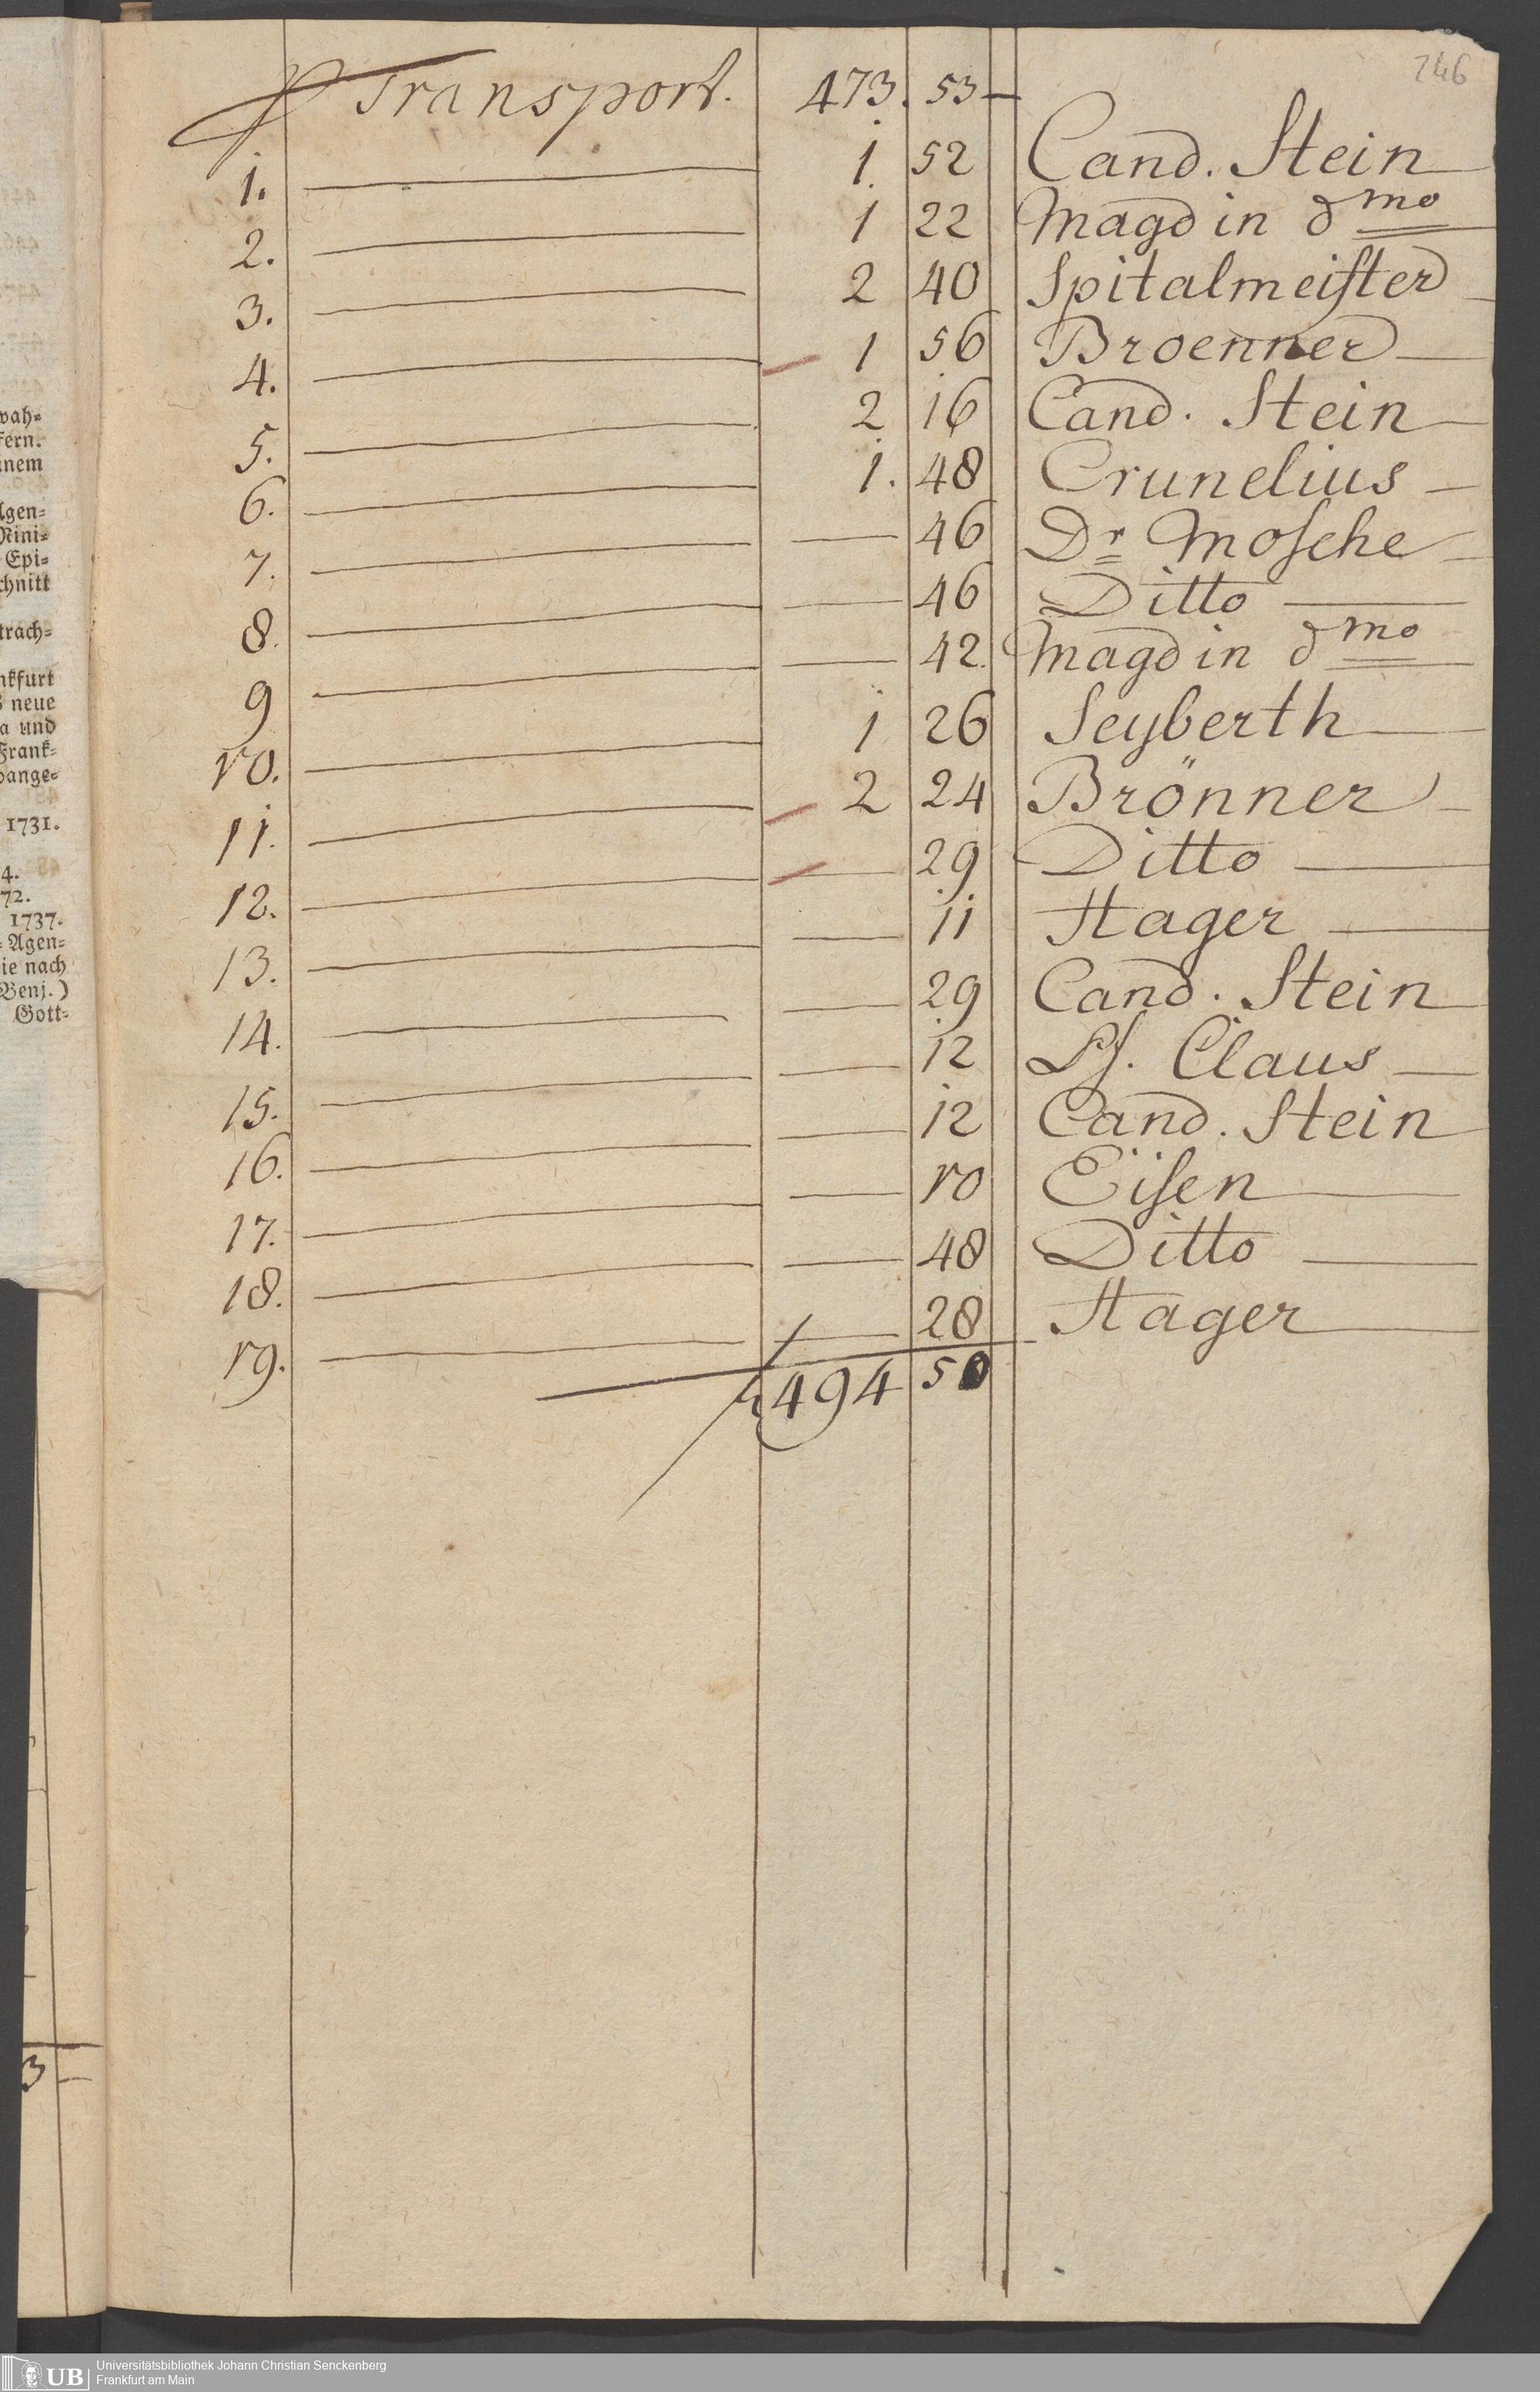 246
Transport. 473. 53 —
1. 1. 52 Cand. Stein
2. 1 22 Magd in dmo
3. 2 40 Spitalmeister
4. 1 56 Broenner
5. 2 16 Cand. Stein
6. 1. 48 Crunelius
7. — 46 Dr Mosche
8. — 46 Ditto
9 — 42. Magd in dmo
10. 1 26 Seyberth
11. 2 24 Brönner
12. — 29 Ditto
13. — 11 Hager
14. — 29 Cand. Stein
15. — 12 Pf. Claus
16. — 12 Cand. Stein
17. — 10 Eisen
18. — 48 Ditto
19. — 28 Hager
494 50
wah=
fern.
inem
Agen=
Nini=
Epi=
chnitt
trach=
nkfurt
neue
a und
Frank=
vange=
1731.
4.
72.
1737.
= Agen=
ie nach
Benj.)
Gott=
3 —
UB
Universitätsbibliothek Johann Christian Senckenberg
Frankfurt am Main